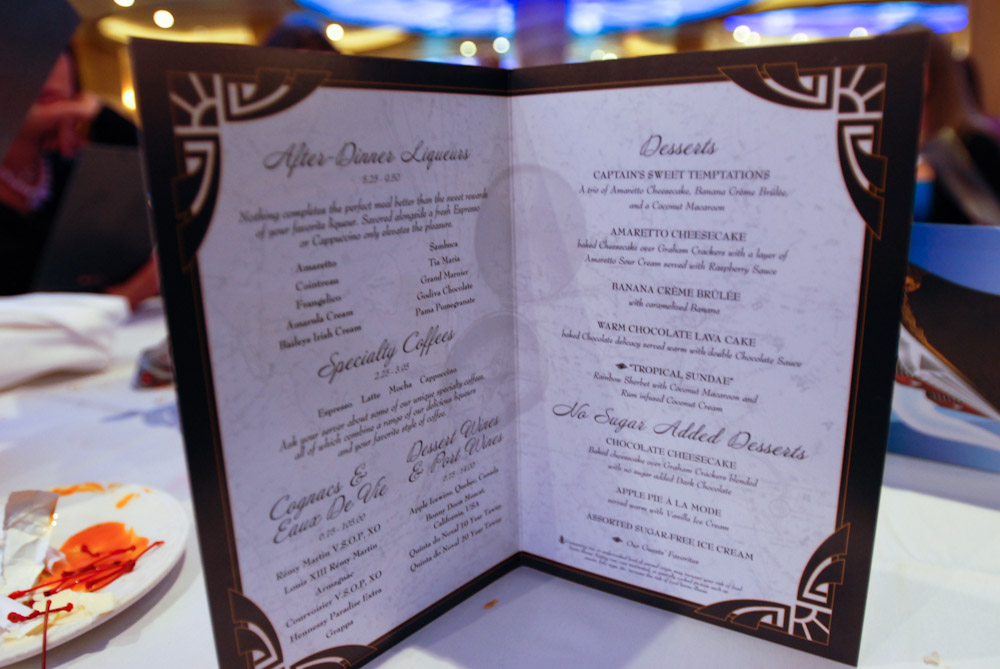 After-Dinner Liqueurs
5.25 - 9.50
Nothing completes the perfect meal better than the sweet rewards
of your favorite liqueur. Savored alongside a fresh Espresso
or Cappuccino only elevates the pleasure.
Amaretto
Cointreau
Frangelico
Amarula Cream
Baileys Irish Cream
Sambuca
Tia Maria
Grand Marnier
Godiva Chocolate
Pama Pomegranate
Specialty Coffees
Espresso Latte Mocha Cappuccino
Ask your server about some of our unique specialty coffees,
all of which combine a range of our delicious liqueurs
and your favorite style of coffee.
Cognacs &
Eaux De Vie
Rémy Martin V.S.O.P, XO
Louis XIII Rémy Martin
Armagnac
Courvoisier V.S.O.P, XO
Hennessy Paradise Extra
Grappa
Dessert Wines
& Port Wines
Apple Icewine, Quebec, Canada
Bonny Doon Muscat
California, USA
Quinta do Noval 10 Year Tawny
Quinta do Noval 20 Year Tawny
Desserts
CAPTAIN'S SWEET TEMPTATIONS
A trio of Amaretto Cheesecake, Banana Crème Brûlée,
and a Coconut Macaroon
AMARETTO CHEESECAKE
baked Cheesecake over Graham Crackers with a layer of
Amaretto Sour Cream served with Raspberry Sauce
BANANA CRÈME BRÛLÉE
with caramelized Banana
WARM CHOCOLATE LAVA CAKE
baked Chocolate delicacy served warm with double Chocolate Sauce
"TROPICAL SUNDAE"
Rainbow Sherbet with Coconut Macaroon and
Rum infused Coconut Cream
No Sugar Added Desserts
CHOCOLATE CHEESECAKE
Baked cheesecake over Graham Crackers blended
with no sugar added Dark Chocolate
APPLE PIE À LA MODE
served with Vanilla Ice Cream
ASSORTED SUGAR-FREE ICE CREAM
Our Guests' Favorites